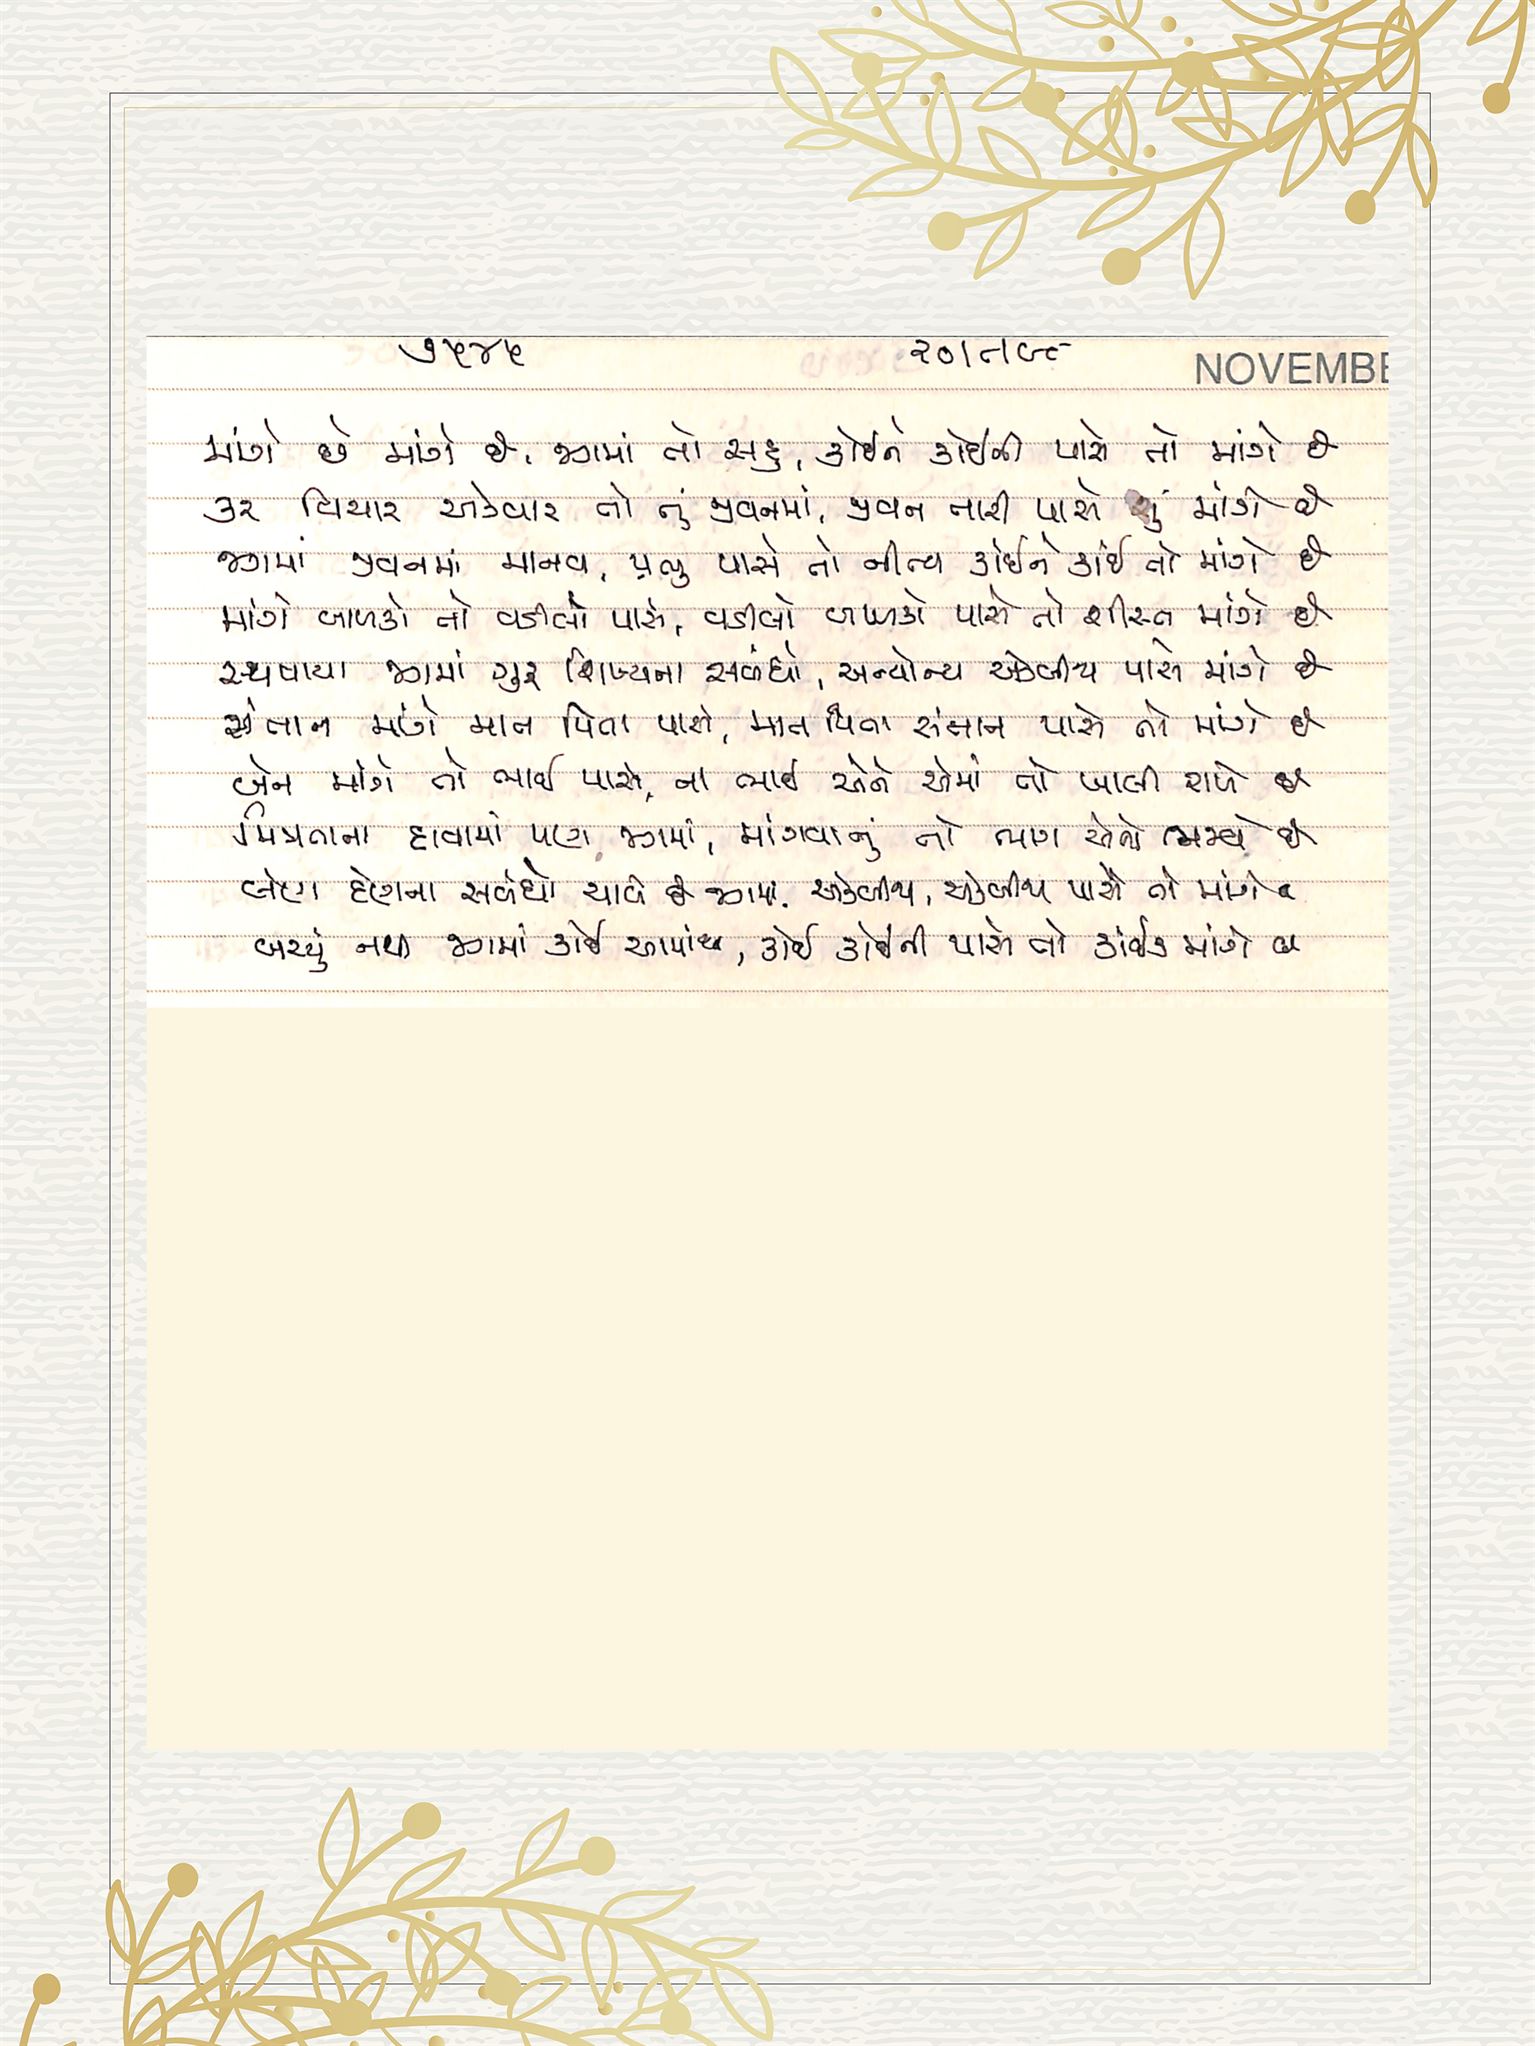 ૭૫૪૫ ૨૦/૮/૯૮ NOVEMBE
માંગે છે માંગે છે, જગમાં તો સહુ, કોઈને કોઈની પાસે તો માંગે છે
કર વિચાર એકવાર તો તું જીવનમાં, જીવન તારી પાસે શું માંગે છે
જગમાં જીવનમાં માનવ, પ્રભુ પાસે તો નીત્ય કોઈને કાંઈ તો માંગે છે
માંગે બાળકો તો વડીલો પાસે, વડીલો બાળકો પાસે તો શીસ્ત માંગે છે
સ્થપાયા જગમાં ગુરુ શિષ્યના સબંધો, અન્યોન્ય એકબીજા પાસે માંગે છે
સંતાન માંગે માત પિતા પાસે, માત પિતા સંતાન પાસે તો માંગે છે
બેન માંગે તો ભાઈ પાસે, ના ભાઈ એને એમાં તો ખાલી રાખે છે
મિત્રતાના દાવામાં પણ જગમાં, માંગવાનું તો ભાગ એનો છે
લેણ દેણના સબંધો ચાલે છે જગમાં, એકબીજા, એકબીજા પાસે તો માંગે છે
બચ્યું નથી જગમાં કોઈ આમાંથી, કોઈ કોઈની પાસે તો કાંઈક માંગે છે